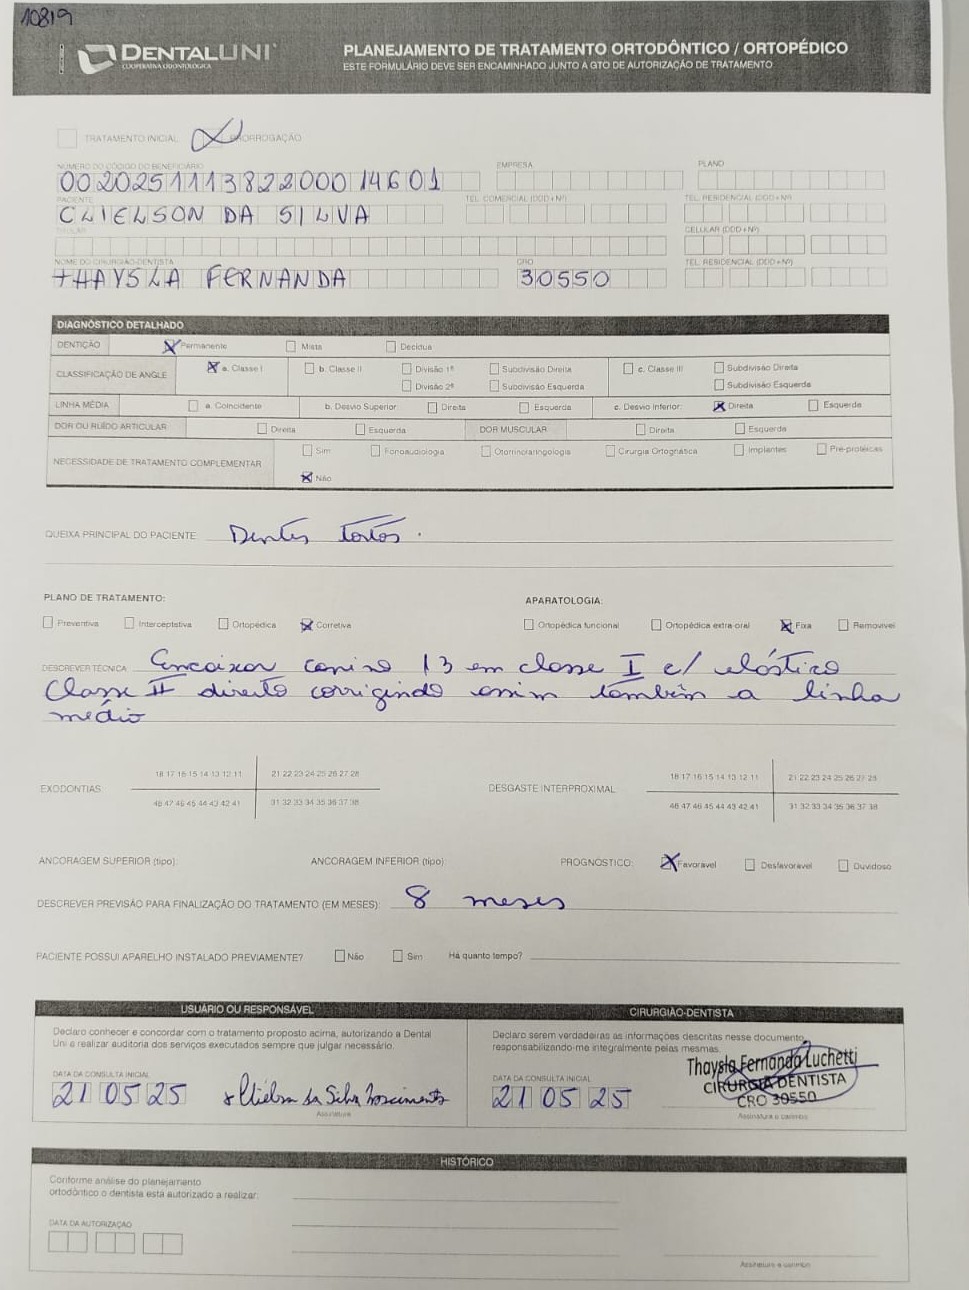 10819
DENTALUNI
COOPERATIVA ODONTOLÓGICA
PLANEJAMENTO DE TRATAMENTO ORTODÔNTICO / ORTOPÉDICO
ESTE FORMULÁRIO DEVE SER ENCAMINHADO JUNTO A GTO DE AUTORIZAÇÃO DE TRATAMENTO
TRATAMENTO INICIAL PRORROGAÇÃO
NÚMERO DO CÓDIGO DO BENEFICIÁRIO EMPRESA PLANO
00202511138220001 4601
PACIENTE TEL. COMERCIAL (DDD+Nº) TEL. RESIDENCIAL (DDD+Nº)
CLIELSON DA SILVA
TITULAR CELULAR (DDD+Nº)
NOME DO CIRURGIÃO-DENTISTA CRO TEL. RESIDENCIAL (DDD+Nº)
THAYSLA FERNANDA 30550
DIAGNÓSTICO DETALHADO
DENTIÇÃO Permanente Mista Decídua
CLASSIFICAÇÃO DE ANGLE a. Classe I b. Classe II Divisão 1ª Subdivisão Direita c. Classe III Subdivisão Direita
Divisão 2ª Subdivisão Esquerda Subdivisão Esquerda
LINHA MÉDIA a. Coincidente b. Desvio Superior: Direita Esquerda c. Desvio Inferior: Direita Esquerda
DOR OU RUÍDO ARTICULAR Direita Esquerda DOR MUSCULAR Direita Esquerda
NECESSIDADE DE TRATAMENTO COMPLEMENTAR Sim Fonoaudiologia Otorrinolaringologia Cirurgia Ortognática Implantes Pré-protéicas
Não
QUEIXA PRINCIPAL DO PACIENTE Dentes tortos.
PLANO DE TRATAMENTO: APARATOLOGIA:
Preventiva Interceptativa Ortopédica Corretiva Ortopédica funcional Ortopédica extra-oral Fixa Removível
DESCREVER TÉCNICA Encaixar canino 13 em classe I c/ elástico
Classe II direito corrigindo assim também a linha
médio
18 17 16 15 14 13 12 11 21 22 23 24 25 26 27 28 18 17 16 15 14 13 12 11 21 22 23 24 25 26 27 28
EXODONTIAS DESGASTE INTERPROXIMAL
48 47 46 45 44 43 42 41 31 32 33 34 35 36 37 38 48 47 46 45 44 43 42 41 31 32 33 34 35 36 37 38
ANCORAGEM SUPERIOR (tipo): ANCORAGEM INFERIOR (tipo): PROGNÓSTICO: Favorável Desfavorável Duvidoso
DESCREVER PREVISÃO PARA FINALIZAÇÃO DO TRATAMENTO (EM MESES) 8 meses
PACIENTE POSSUI APARELHO INSTALADO PREVIAMENTE? Não Sim Há quanto tempo?
USUÁRIO OU RESPONSÁVEL CIRURGIÃO-DENTISTA
Declaro conhecer e concordar com o tratamento proposto acima, autorizando a Dental
Uni a realizar auditoria dos serviços executados sempre que julgar necessário.
Declaro serem verdadeiras as informações descritas nesse documento,
responsabilizando-me integralmente pelas mesmas.
DATA DA CONSULTA INICIAL DATA DA CONSULTA INICIAL
21 05 25 x Clielson da Silva Nascimento 21 05 25
Thaysla Fernanda Luchetti
CIRURGIÃ DENTISTA
CRO 30550
Assinatura Assinatura e carimbo
HISTÓRICO
Conforme análise do planejamento
ortodôntico o dentista está autorizado a realizar:
DATA DA AUTORIZAÇÃO
Assinatura e carimbo